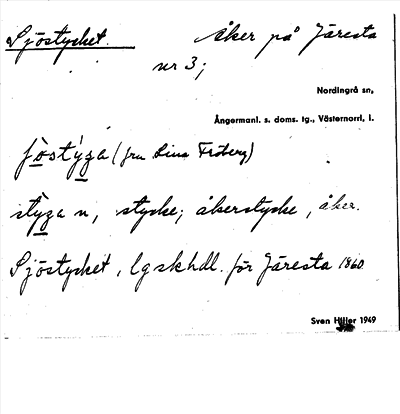 Sjöstycket. åker på Järesta
nr 3;
Nordingrå sn,
Ångermanl. s. doms. tg., Västernorrl, l.
jöstyʒa (fru Lina Froberg)
styʒa n, stycke; åkerstycke, åker.
Sjöstycket, lgskhdl. för Järesta 1860
Sven Hiller 1949